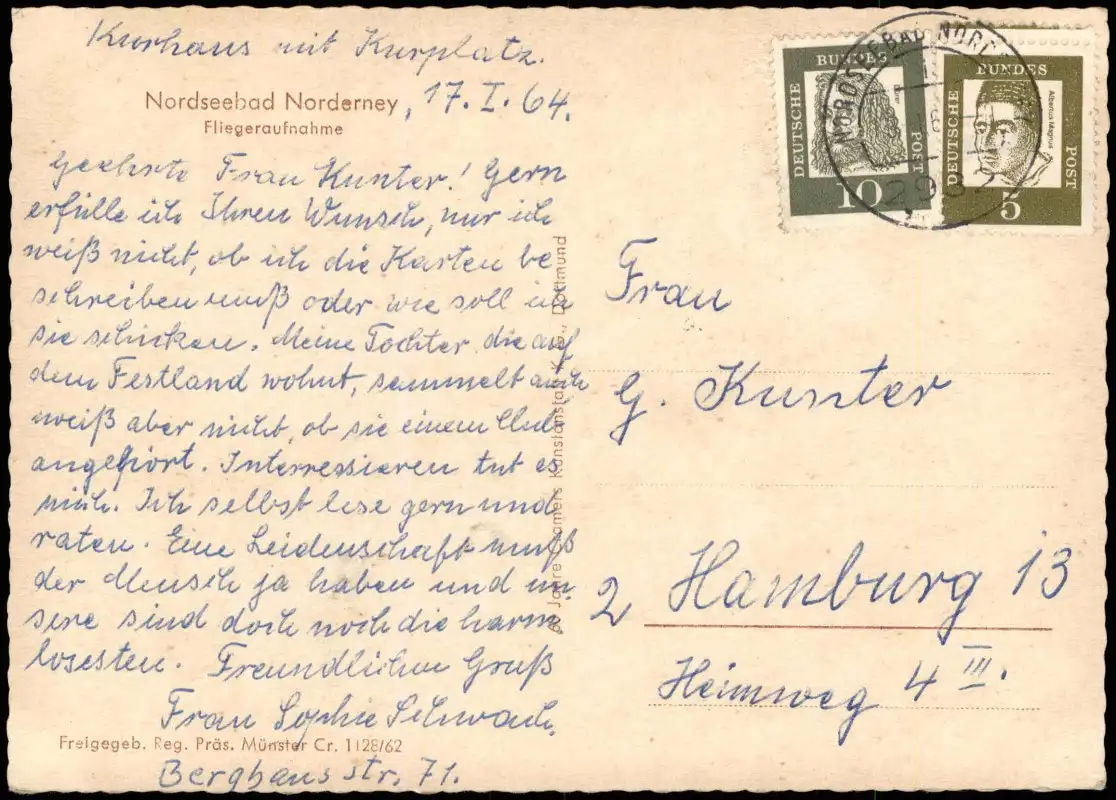 Kurhaus mit Kurplatz.
Nordseebad Norderney, 17. I. 64.
Fliegeraufnahme
Geehrte Frau Kunter! Gern
erfülle ich Ihren Wunsch, nur ich
weiß nicht, ob ich die Karten be
schreiben muß oder wie soll ich
sie schicken. Meine Tochter die auf
dem Festland wohnt, sammelt auch
weiß aber nicht, ob sie einem Club
angehört. Interressieren tut es
mich. Ich selbst lese gern und
raten. Eine Leidenschaft muß
der Mensch ja haben und un
sere sind doch noch die harm
losesten. Freundlichen Gruß
Frau Sophie Schwach,
Freigegeb. Reg. Präs. Münster Cr. 1128/62
Berghausstr, 71.
Jahre Cramers Kunstanstalt K.G., Dortmund
DEUTSCHE BUNDES POST
10
DEUTSCHE BUNDES POST
Albertus Magnus
5
NORDSEEBAD NORD
2982
Frau
G. Kunter
2 Hamburg 13
Heimweg 4 III.